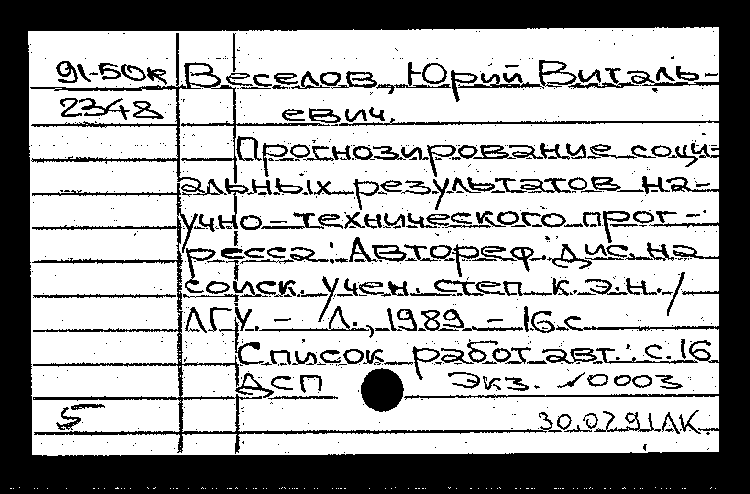 91-50к Веселов, Юрий Виталь-
2348 евич.
Прогнозирование соци-
альных результатов на-
учно-технического прог-
ресса: Автореф. дис. на
соиск. учен. степ. к.э.н. /
ЛГУ. - Л., 1989. - 16 с.
Список работ авт.: с. 16
ДСП Экз. 0003
5 30.07.91 ЛК.